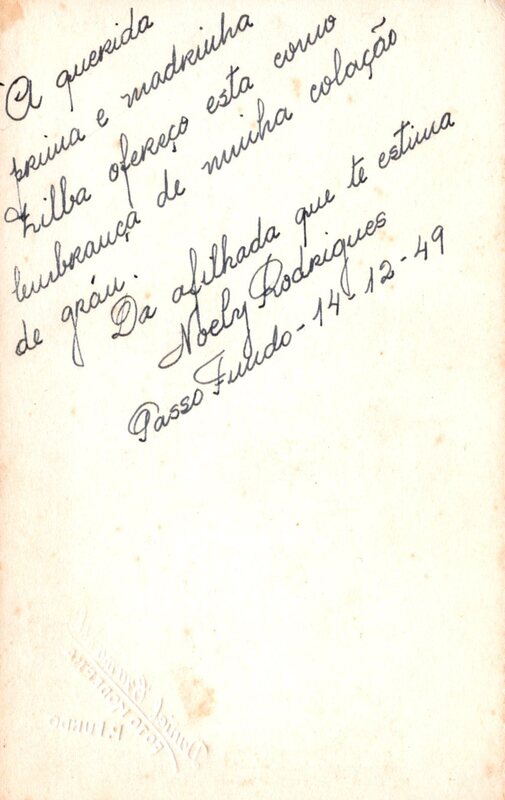 À querida
prima e madrinha
Zilba ofereço esta como
lembrança de minha colação
de gráu.
Da afilhada que te estima
Noely Rodrigues
Passo Fundo - 14-12-49
Foto Moderna
P. Fundo